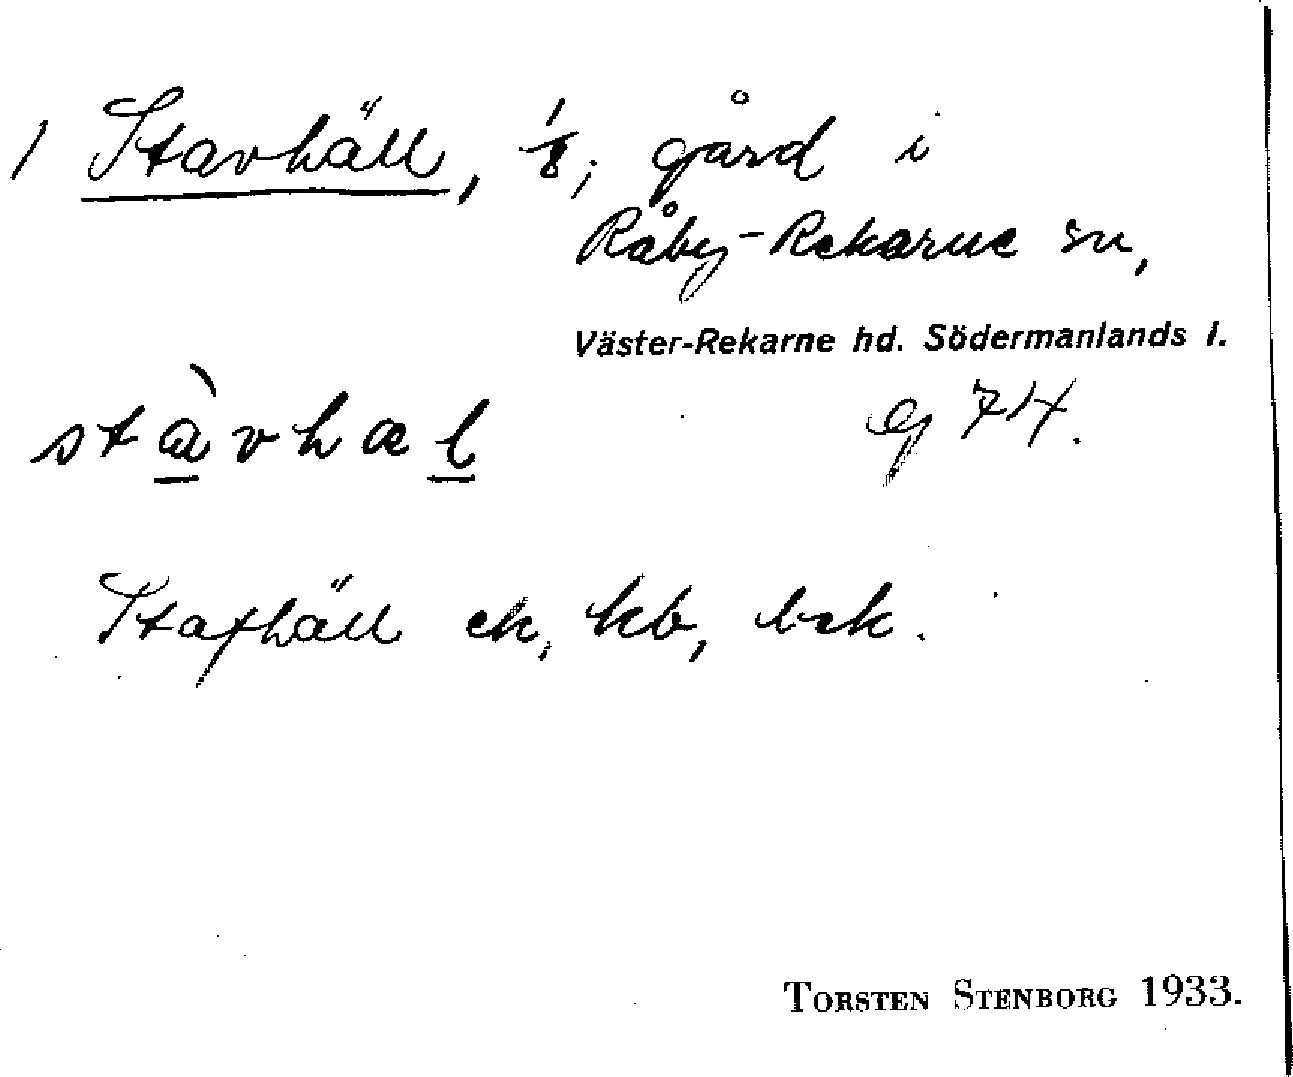 1 Stavhäll, 1/8; gård i
Råby-Rekarne sn,
Väster-Rekarne hd. Södermanlands l.
stàvhæl
g 74.
Stafhäll ek, kb, bek.
TORSTEN STENBORG 1933.